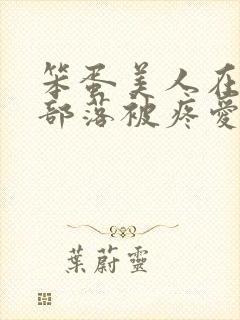 笨蛋美人在
部落被疼愛
葉蔚靈